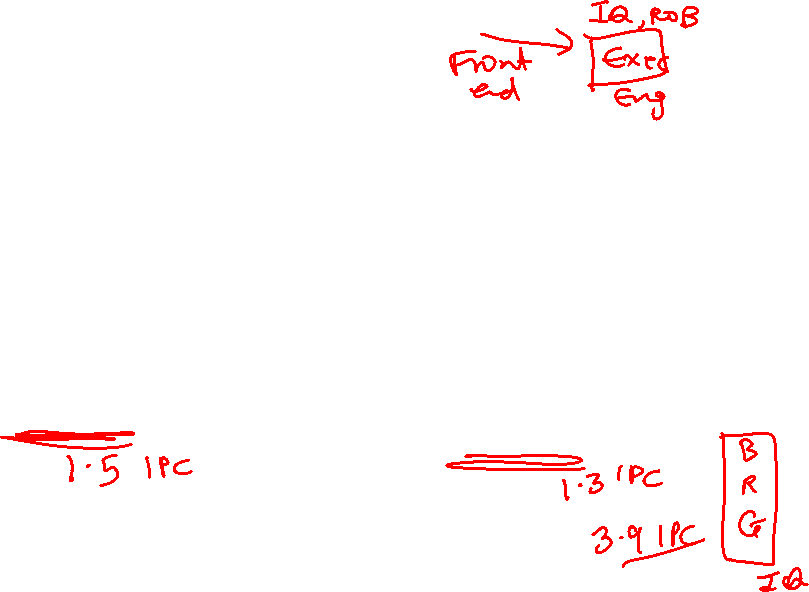 IQ, ROB
Front
end
Exec
Eng
1.5 IPC
1.3 IPC
3.9 IPC
B
R
G
IQ